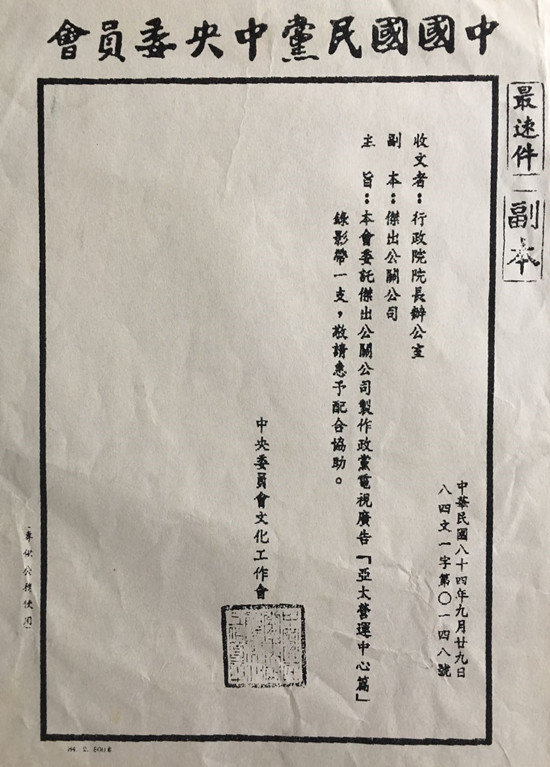 中國國民黨中央委員會
最速件
副本
中華民國八十四年九月廿九日
八四文一字第〇一四八號
收文者：行政院院長辦公室
副　本：傑出公關公司
主　旨：本會委託傑出公關公司製作政黨電視廣告「亞太營運中心篇」
錄影帶一支，敬請惠予配合協助。
中央委員會文化工作會
（專供公務使用）
84. 2. 500本